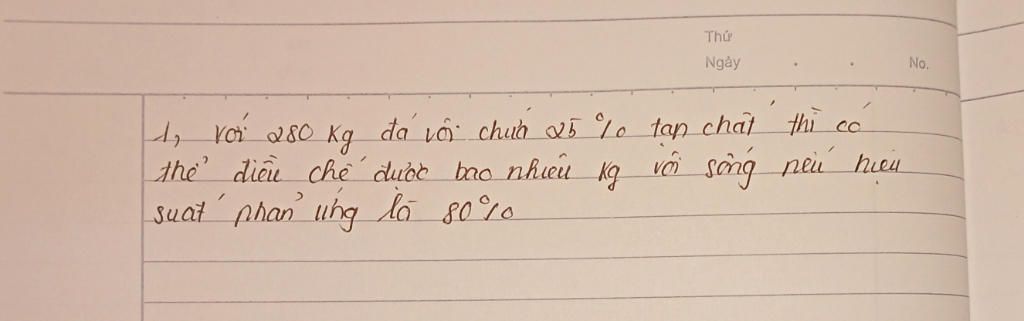 Thứ
Ngày . . No.
1, Với 280 Kg đá vôi chứa 25 % tạp chất thì có
thể điều chế được bao nhiêu kg vôi sống nếu hiệu
suất phản ứng là 80%